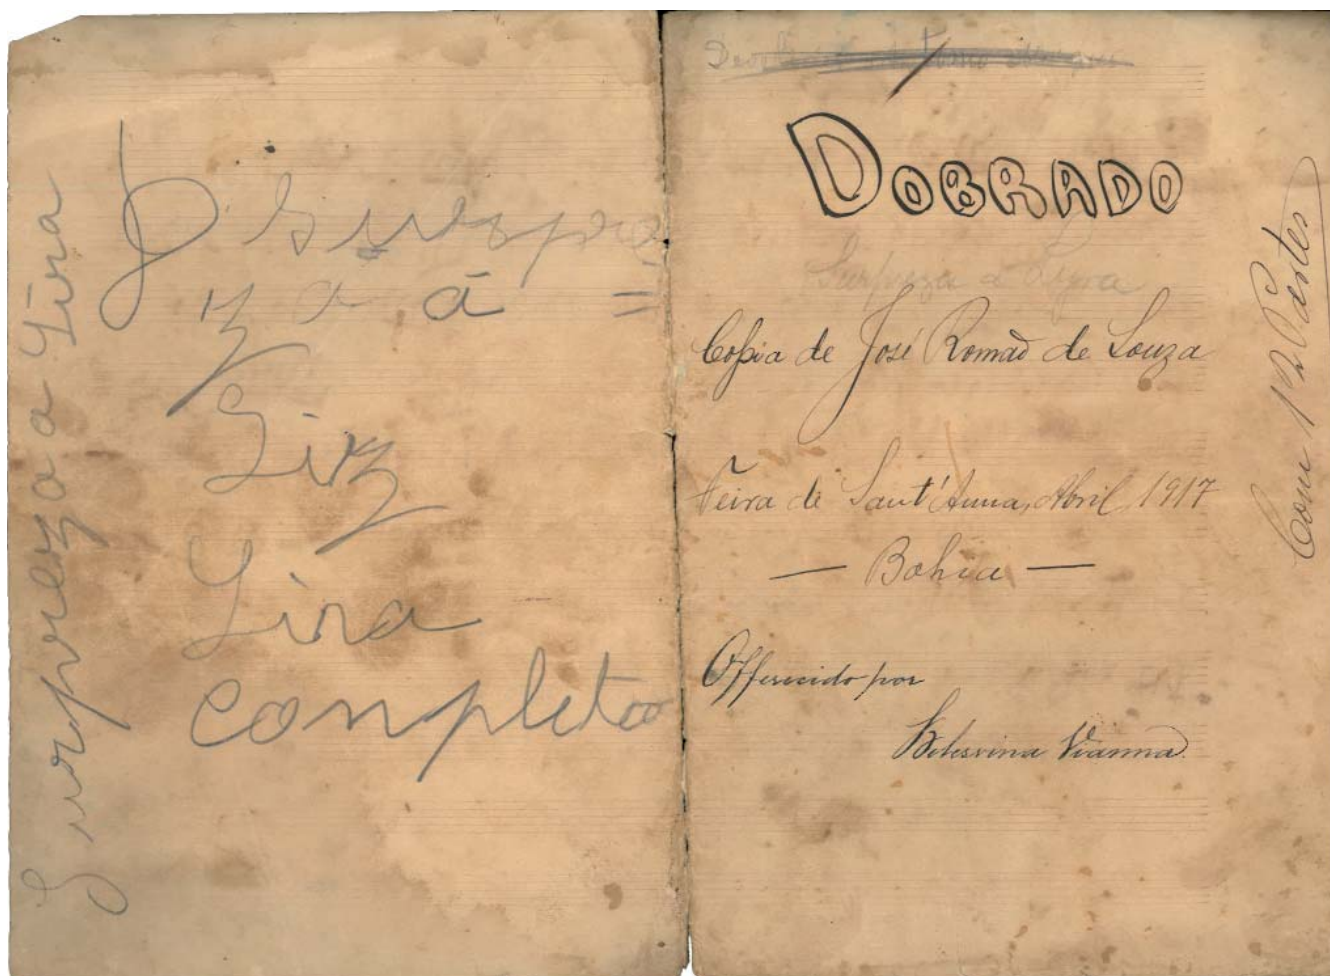 Surpreza a Lira
D Surpre
za á =
Liz
Lira
completo
DOBRADO
Surpreza a Lyra
Copia de José Romão de Souza
Feira de Sant'Anna, Abril, 1917
— Bahia —
Offerecido por
Vianna
Com 12 Partes